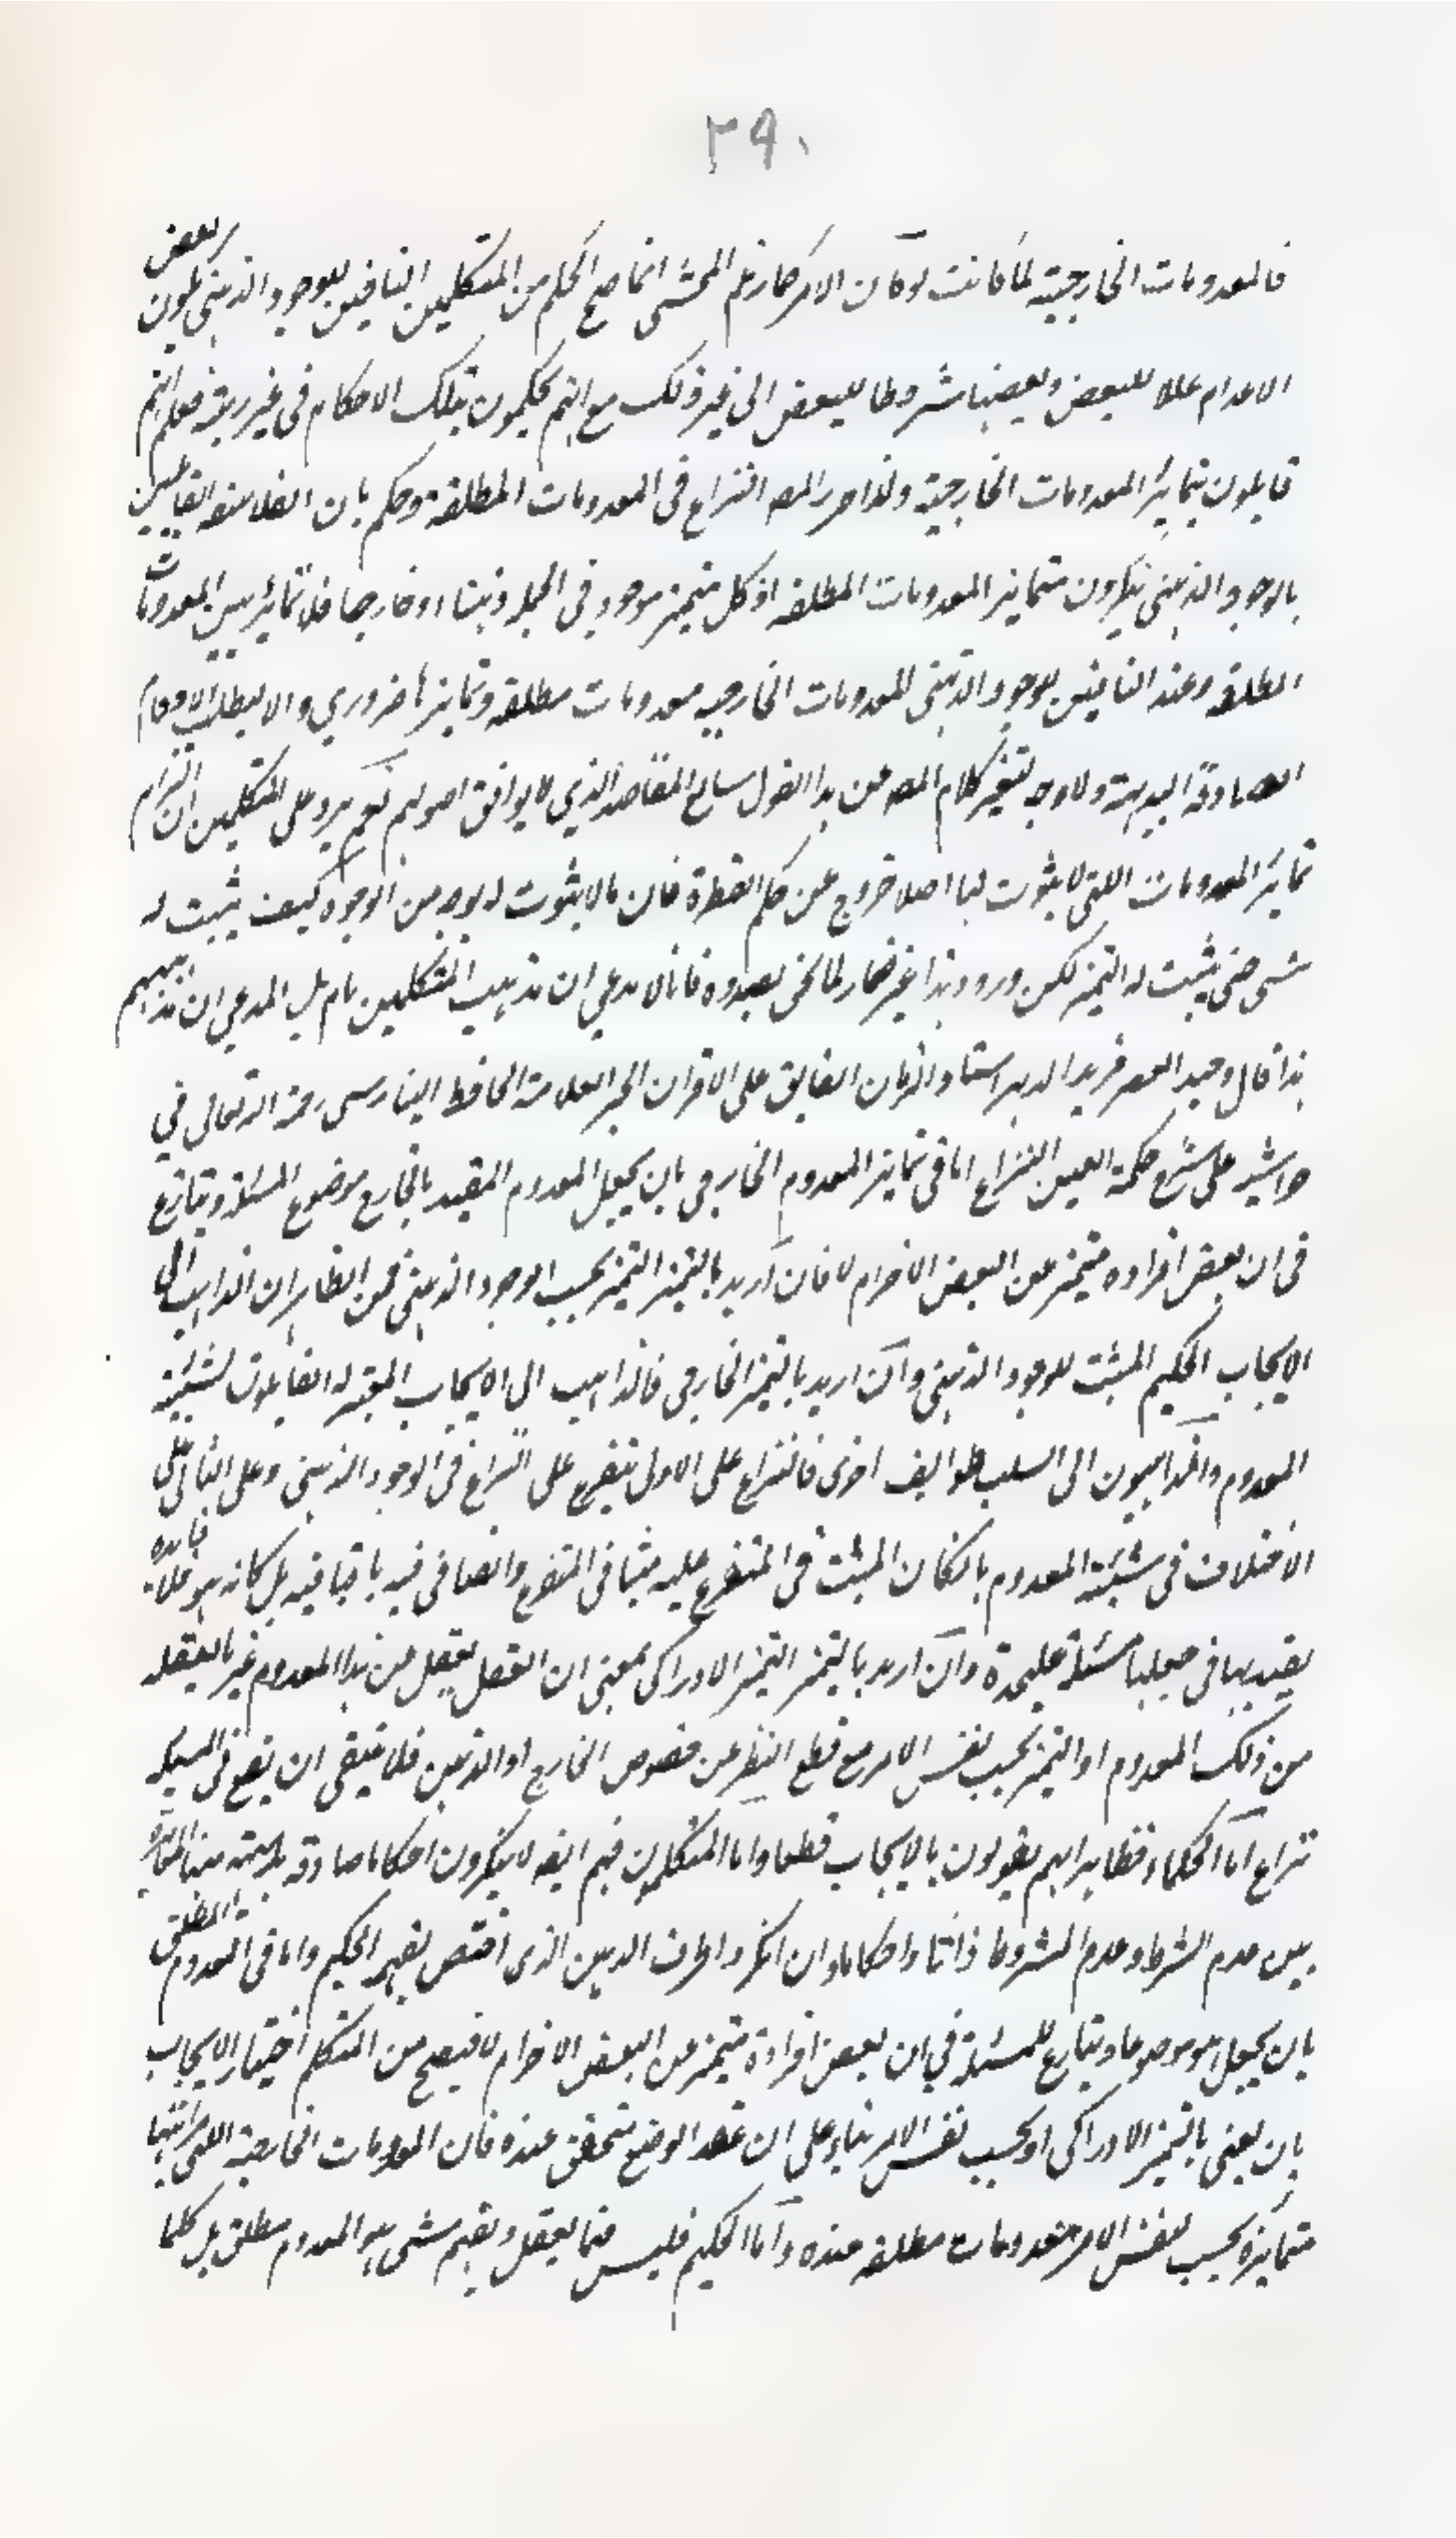 ٢٩٠
فالمعدومات الخارجية لما كانت لو كان الامر كما زعم المحشى انما صح الحكم من المتكلمين النافين للوجود الذهنى بكون بعض
الاعدام عللا للبعض وبعضها شروطا للبعض الى غير ذلك مع انهم يحكمون بتلك الاحكام فى غير ريبة فعلم انهم
قايلون بتمايز المعدومات الخارجية ولذا حرر المصـ النزاع فى المعدومات المطلقة وحكم بان الفلاسفه القايلين
بالوجود الذهنى ينكرون بتمايز المعدومات المطلقه اذ كل متميز موجود فى الجملة ذهنا او خارجا فلا تمايز بين المعدومات
المطلقة وعند النافين للوجود الذهنى المعدومات الخارجيه معدومات مطلقه وتمايزها ضروري والا ليبطلت الاحكام
الصادقة البديهة ولا وجه لتغير كلام المصـ عن هذا القول سيما المقاصد الذي لا يوافق اصولهم نعم يرد على المتكلمين ان التزام
تمايز المعدومات التى لا ثبوت لها اصلا خروج عن حكم الفطرة فان مالا ثبوت له بوجه من الوجوه كيف يثبت له
شى حتى يثبت له التميز لكن ورود هذا غير ضار لما نحن بصدده فانا لا ندعي ان مذهب المتكلمين تام بل المدعي ان مذهبهم
هذا قال وحيد العصر فريد الدهر استاد الزمان الفايق على الاقران الحبر العلامة الحافظ البنارسى رحمة الله تعالى في
حواشيه على شرح حكمة العين النزاع اما فى تمايز المعدوم الخارجى بان يجعل المعدوم المقيد بالخارج موضوع المسئلة ويتنازع
فى ان بعض افراده متميز عن البعض الاخر ام لا فان اريد بالتميز التميز بحسب الوجود الذهنى فمن الظاهر ان الذاهب الى
الايجاب الحكيم المثبت للوجود الذهنى وان اريد بالتميز الخارجى فالذاهب الى الايجاب المعتزله القايلون لشيئية
المعدوم والذاهبون الى السلب طوايف اخرى فالنزاع على الاول يتفرع على النزاع فى الوجود الذهنى وعلى الثانى على
الاختلاف فى شيئية المعدوم بالكان المثبت فى المتفرع عليه مثبتا فى المتفرع والنافى فيه نافيا فيه بل كانه هو فلا فايده
يعتد بها فى جعلها مسئلة عليحدة وان اريد بالتميز التميز الادراكى بمعنى ان العقل يعقل من هذا المعدوم غير ما يعقله
من ذلك المعدوم او التميز بحسب نفس الامر مع قطع النظر عن خصوص الخارج او الذهن فلا ينبغى ان يقع فى المسئله
نزاع اما الحكماء فظاهر انهم يقولون بالايجاب قطعا واما المتكلمون فهم ايضا لا ينكرون احكاما صادقه بديهية منها المغايرة
بين عدم الشرط وعدم المشروط ذاتا واحكاما وان انكروا ظرف الذهن الذى اختص بفهمه الحكيم واما فى المعدوم المطلق
بان يجعل هو موضوعا ويتنازع للمسئلة في ان بعض افراده متميز عن البعض الاخر ام لا فيصح من المتكلم اختيار الايجاب
بان يعنى بالتميز الادراكى او بحسب نفس الامر بناء على ان عقد الوضع متحقق عنده فان المعدومات الخارجية التى
متمايزة بحسب نفس الامر معدومات مطلقه عنده واما الحكيم فليس فيما يعقل ويفهم شى هو المعدوم مطلق بل كلما